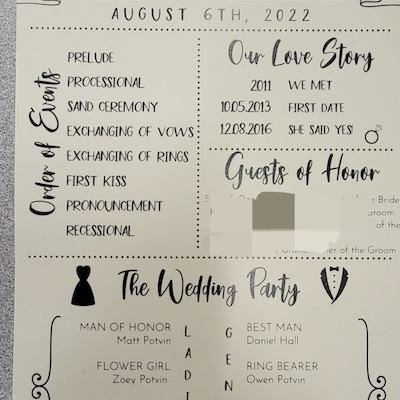 AUGUST 6TH, 2022
Order of Events
PRELUDE
PROCESSIONAL
SAND CEREMONY
EXCHANGING OF VOWS
EXCHANGING OF RINGS
FIRST KISS
PRONOUNCEMENT
RECESSIONAL
Our Love Story
2011 WE MET
10.05.2013 FIRST DATE
12.08.2016 SHE SAID YES!
Guests of Honor
Bride
of the
of the Groom
The Wedding Party
LADI
MAN OF HONOR
Matt Potvin
FLOWER GIRL
Zoey Potvin
GEN
BEST MAN
Daniel Hall
RING BEARER
Owen Potvin